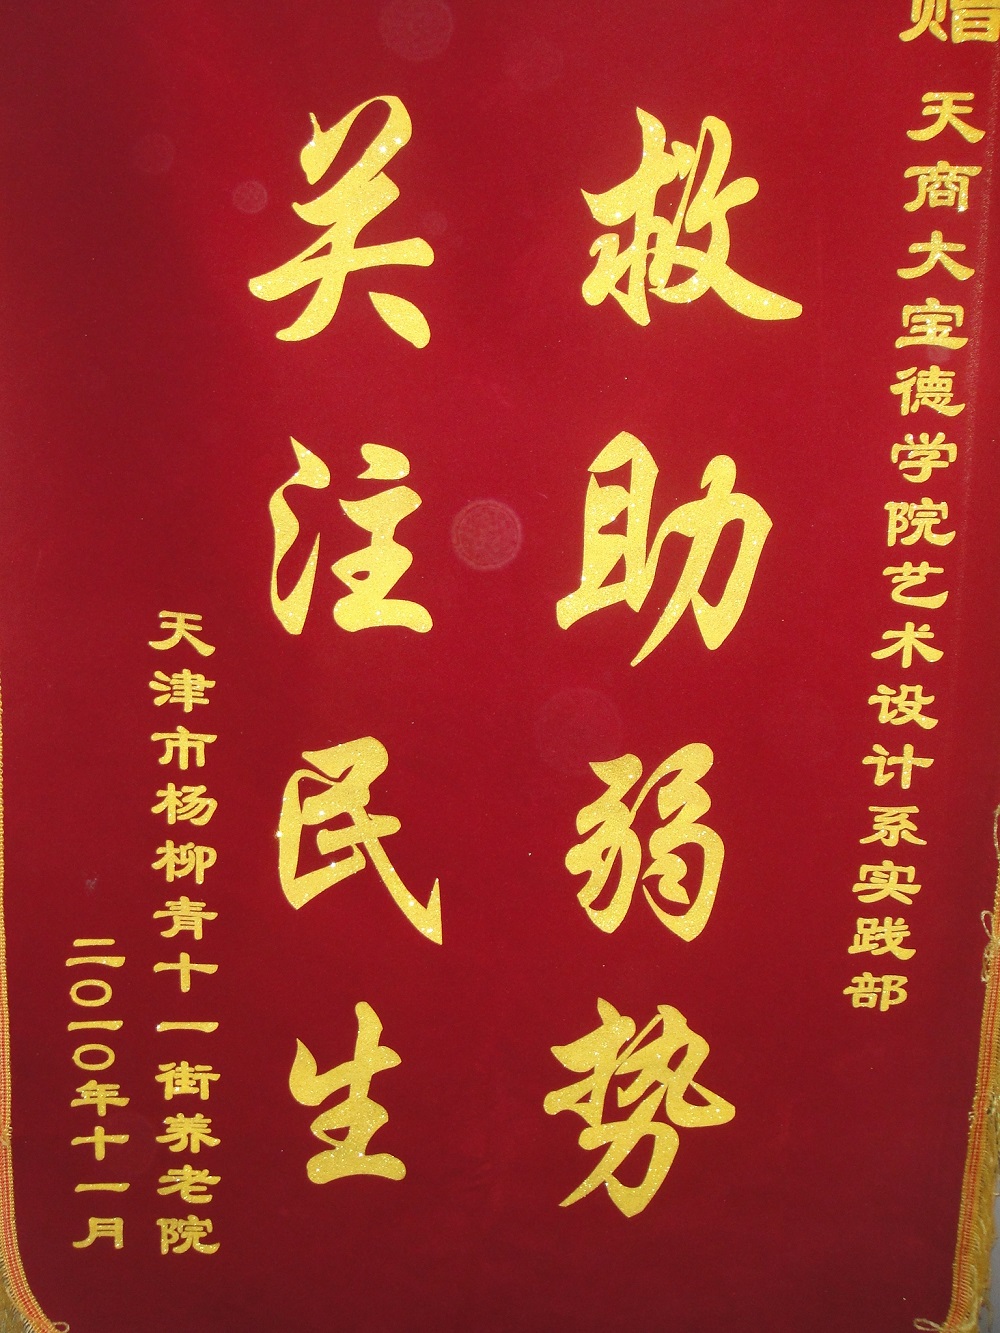 赠
天商大宝德学院艺术设计系实践部
救助弱势
关注民生
天津市杨柳青十一街养老院
二〇一〇年十一月